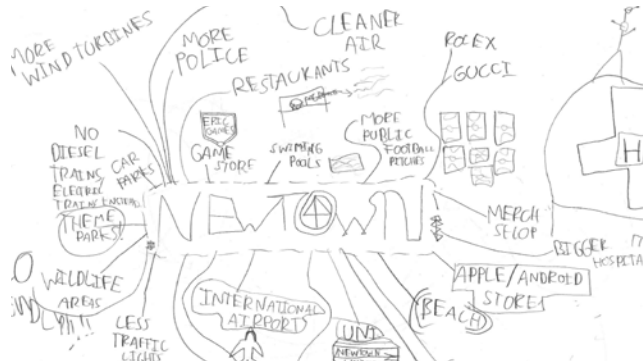 MORE
WIND TURBINES
MORE
POLICE
CLEANER
AIR
RESTAURANTS
ROLEX
GUCCI
EPIC
GAMES
GAME
STORE
SWIMING
POOLS
MORE
PUBLIC
FOOTBALL
PITCHES
NO
DIESEL
TRAINS
ELECTRIC
TRAINS INSTEAD!
CAR
PARKS
THEME
PARKS!
NEWTOWN
H
MERCH
SHOP
BIGGER
HOSPITA
WILDLIFE
AREAS
LESS
TRAFFIC
LIGHTS
INTERNATIONAL
AIRPORTS
UNI
NEWTOWN
BEACH
APPLE/ANDROID
STORES